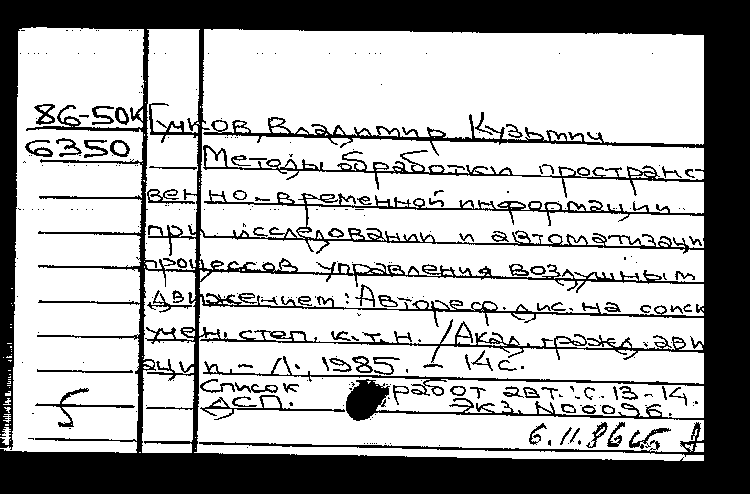 86-50к Гучков, Владимир Кузьмич
6350 Методы обработки пространст
венно-временной информации
при исследовании и автоматизаци
процессов управления воздушным
движением: Автореф. дис. на соиск
учен. степ. к.т.н. / Акад. гражд. ави
ации. - Л., 1985. - 14 с.
Список работ авт.: с. 13-14.
5 ДСП. Экз. N00096.
6.11.86